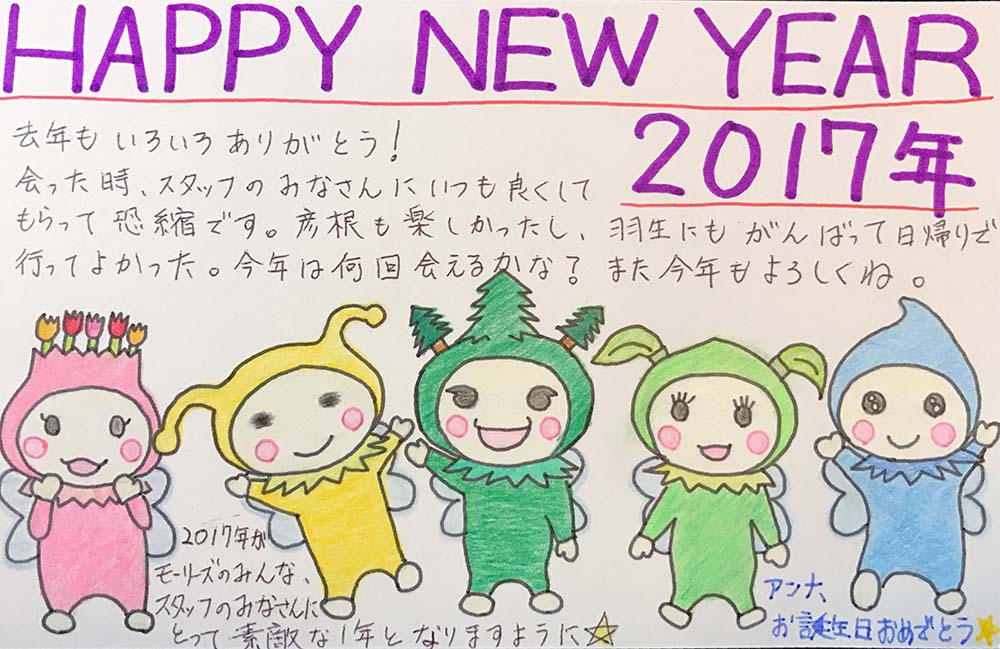 HAPPY NEW YEAR
2017年
去年もいろいろありがとう！
会った時、スタッフのみなさんにいつも良くして
もらって恐縮です。彦根も楽しかったし、羽生にもがんばって日帰りで
行ってよかった。今年は何回会えるかな？また今年もよろしくね。
2017年が
モーリーズのみんな、
スタッフのみなさんに
とって素敵な1年となりますように☆
アンナ、
お誕生日おめでとう☆